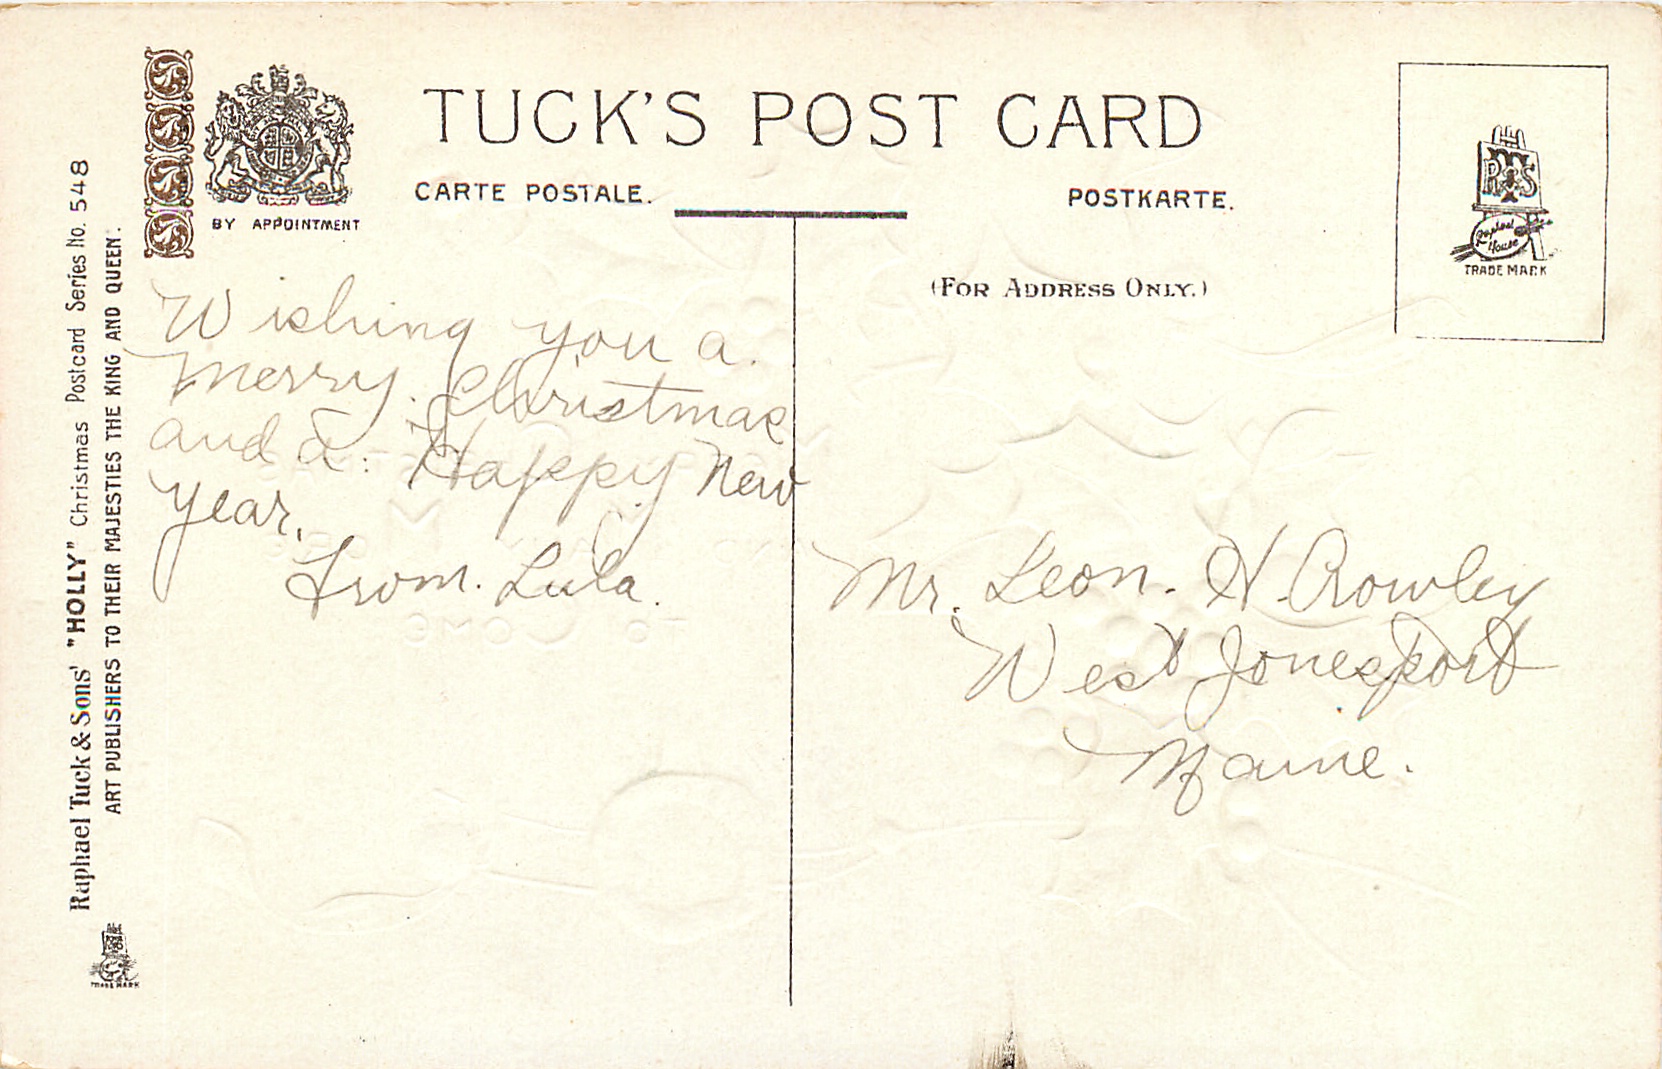 TUCK'S POST CARD
CARTE POSTALE.
POSTKARTE.
BY APPOINTMENT
(FOR ADDRESS ONLY.)
R T S
Raphael House
TRADE MARK
Raphael Tuck & Sons' "HOLLY" Christmas Postcard Series No. 548
ART PUBLISHERS TO THEIR MAJESTIES THE KING AND QUEEN.
TRADE MARK
Wishing you a.
Merry. Christmas
and a: Happy New
Year.
From. Lula.
Mr. Leon. H. Crowley
West Jonesport
Maine.